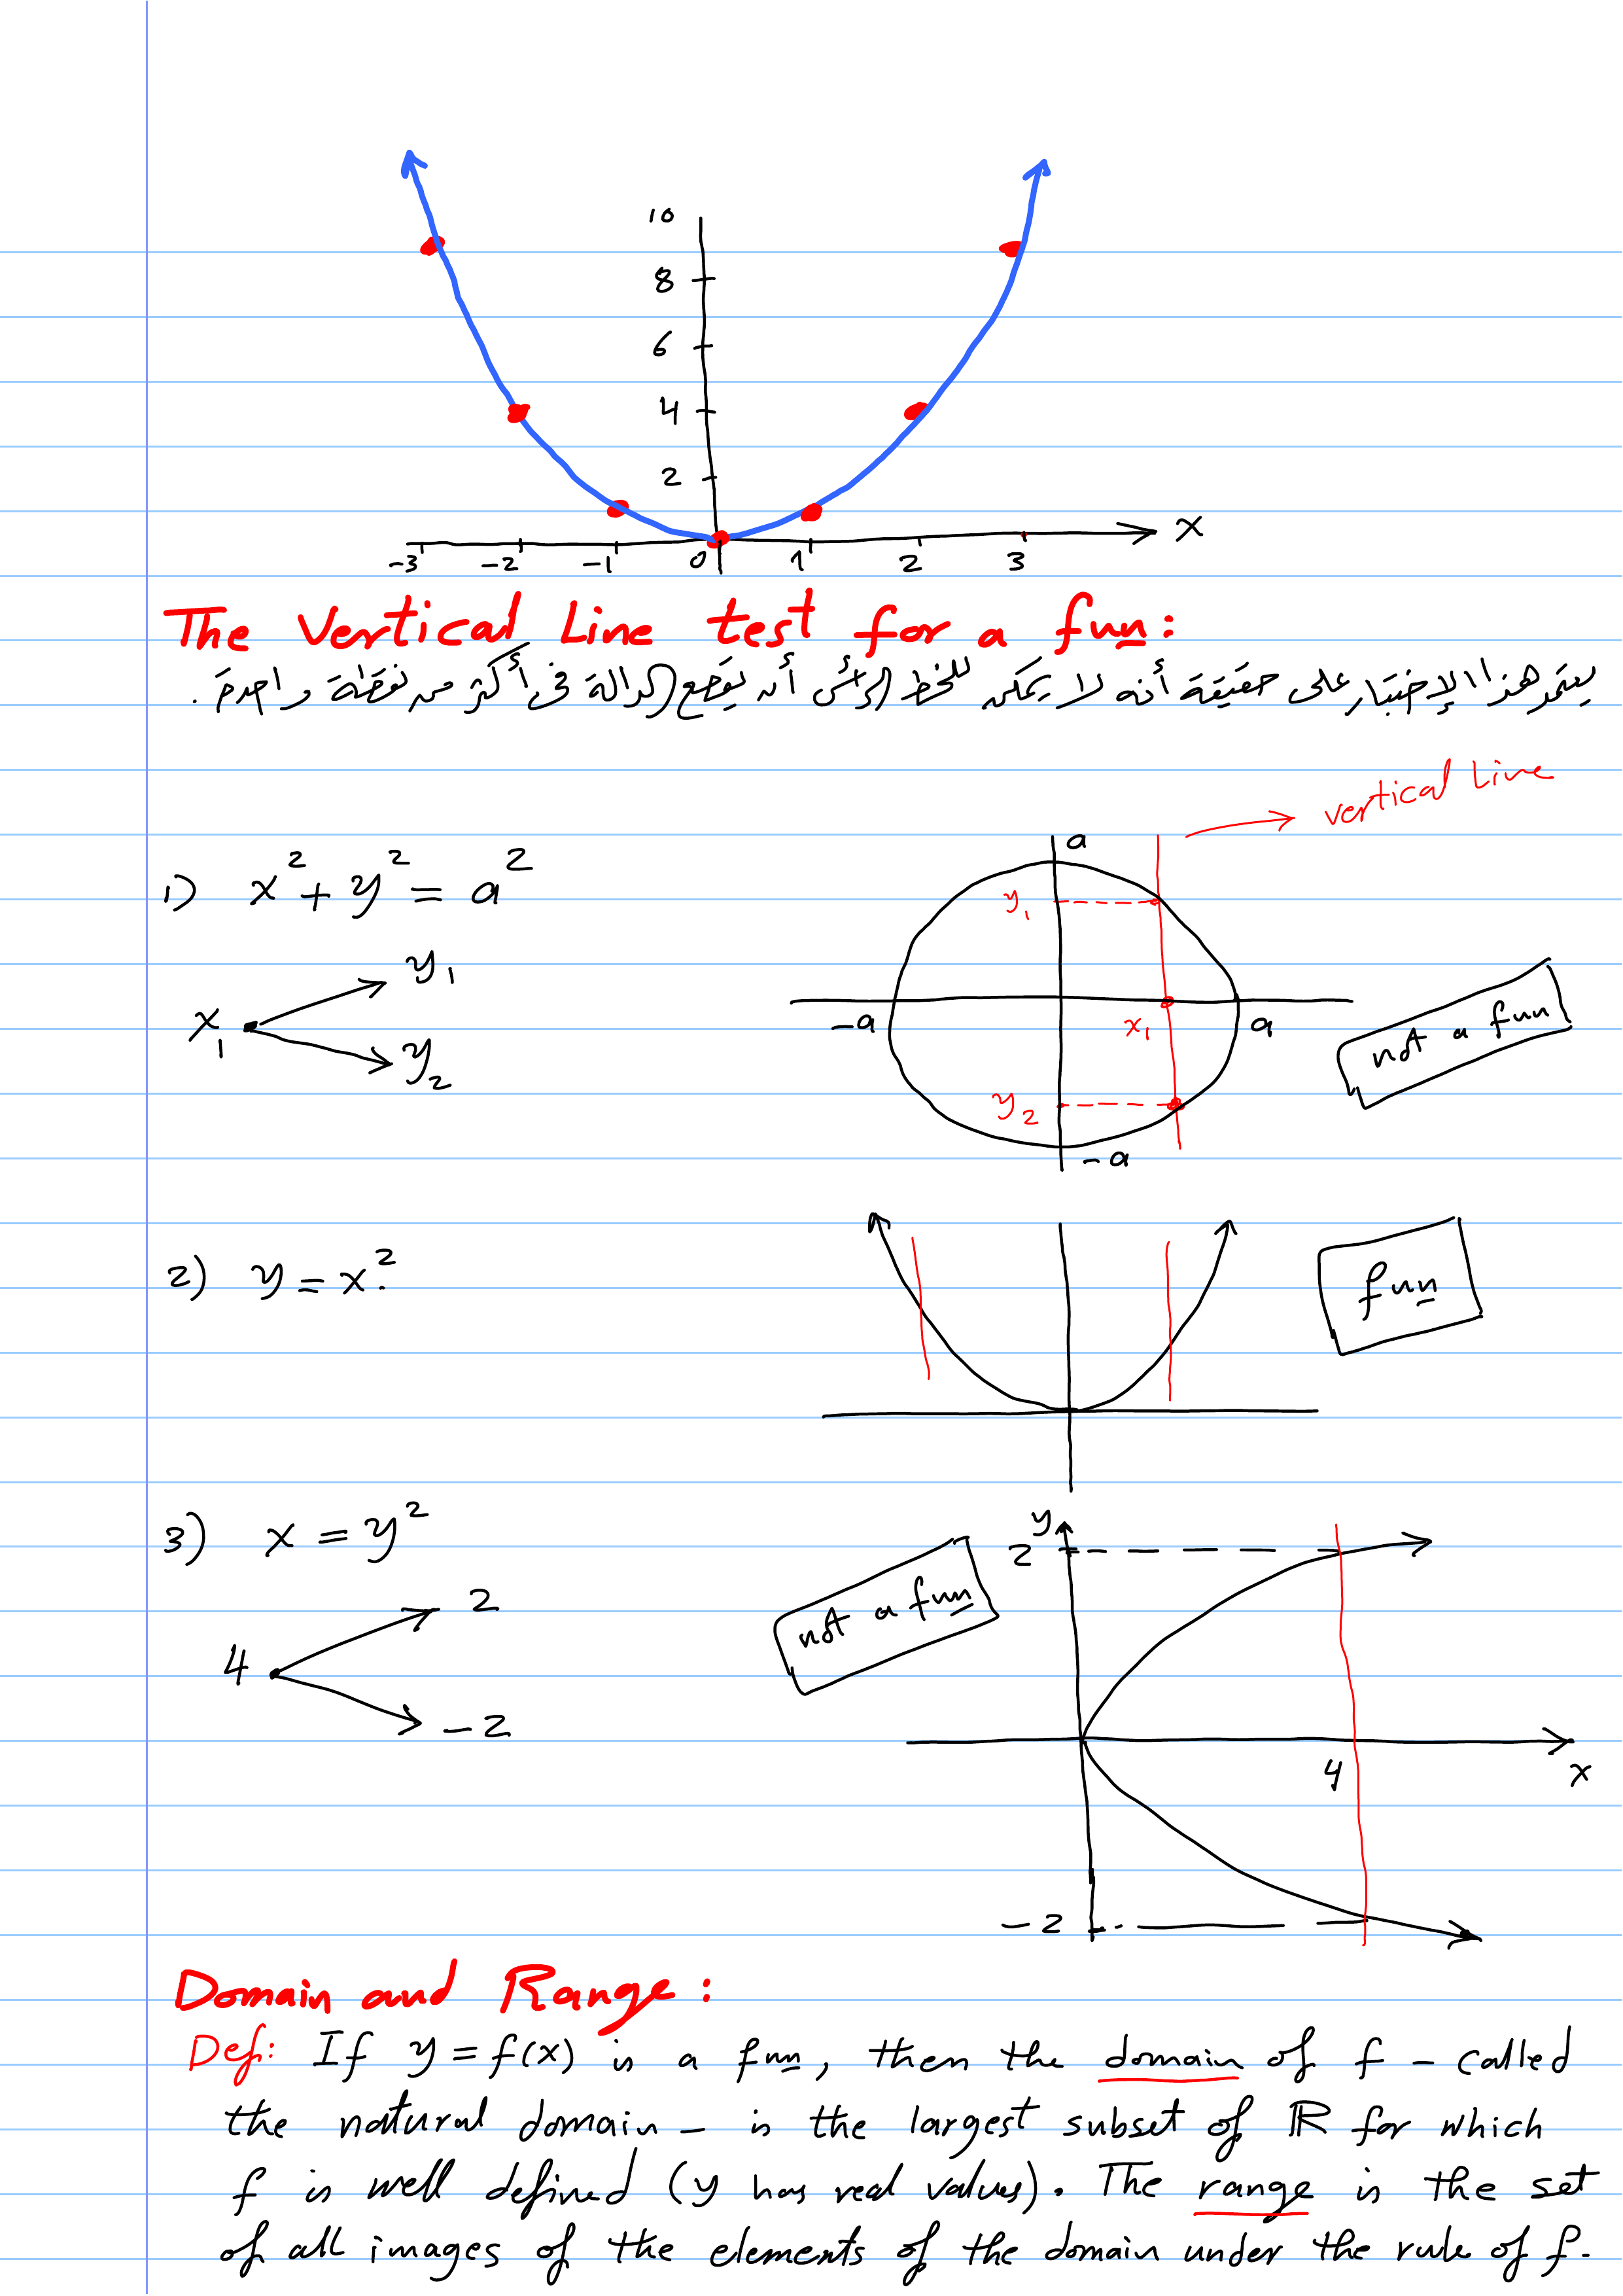 10
8
6
4
2
x
-3 -2 -1 0 1 2 3
The Vertical Line test for a fun:
يعتمد هذا الإختبار على حقيقة أنه لا يمكن للخط الرأسى أن يقطع الدالة فى أكثر من نقطة واحدة.
vertical Line
1) x² + y² = a²
a
y₁
x₁ y₁ y₂
-a x₁ a
not a fun
y₂
-a
2) y = x².
fun
3) x = y²
y
2
not a fun
4 2 -2
4 x
-2
Domain and Range:
Def: If y = f(x) is a fun, then the domain of f - called
the natural domain - is the largest subset of ℝ for which
f is well defined (y has real values). The range is the set
of all images of the elements of the domain under the rule of f.